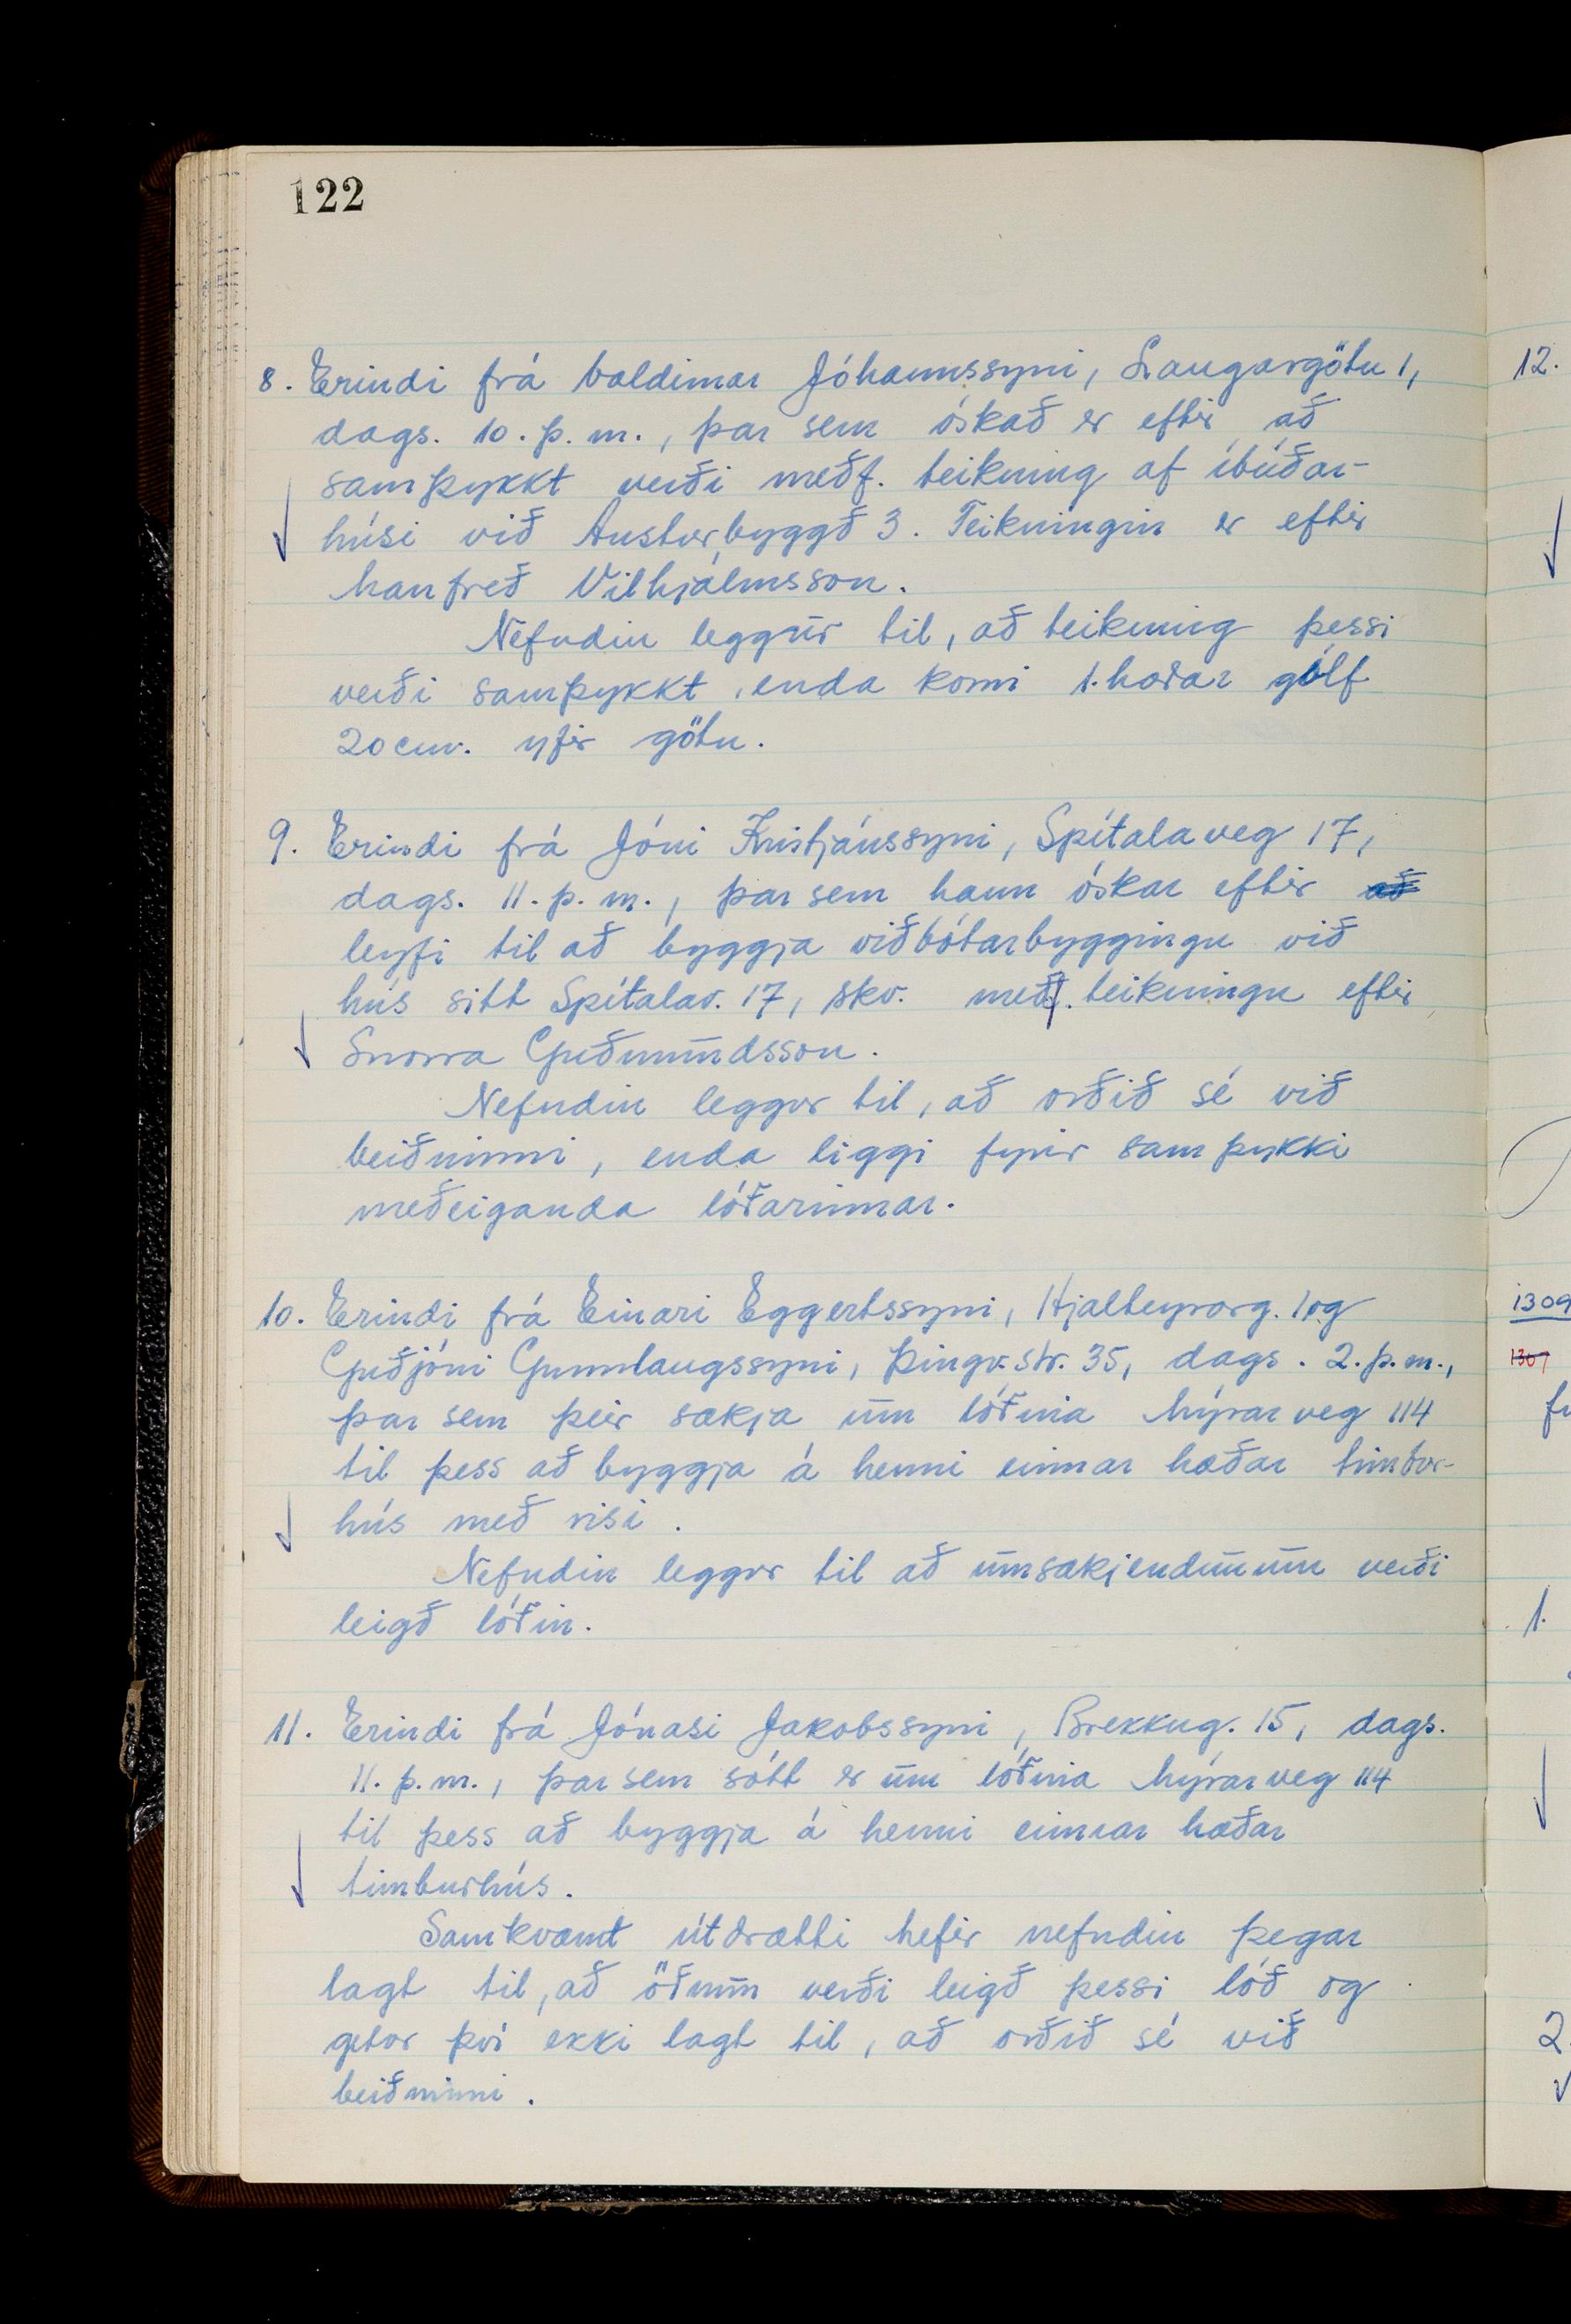 122
8. Erindi frá Valdimar Jóhannssyni, Laugargötu 1,
dags. 10. þ. m., þar sem óskað er eftir að
samþykkt verði meðf. teikning af íbúðar-
húsi við Austurbyggð 3. Teikningin er eftir
Manfreð Vilhjálmsson.
Nefndin leggur til, að teikning þessi
verði samþykkt, enda komi 1. hæðar gólf
20 cm. yfir götu.
9. Erindi frá Jóni Kristjánssyni, Spítalaveg 17,
dags. 11. þ. m., þar sem hann óskar eftir að
leyfi til að byggja viðbótarbyggingu við
hús sitt Spítalav. 17, skv. meðf. teikningu eftir
Snorra Guðmundsson.
Nefndin leggur til, að orðið sé við
beiðninni, enda liggi fyrir samþykki
meðeiganda lóðarinnar.
10. Erindi frá Einari Eggertssyni, Hjalteyrarg. 1 og
Guðjóni Gunnlaugssyni, Þingv.str. 35, dags. 2. þ. m.,
þar sem þeir sækja um lóðina Mýrarveg 114
til þess að byggja á henni einnar hæðar timbur-
hús með risi.
Nefndin leggur til að umsækjendunum verði
leigð lóðin.
11. Erindi frá Jónasi Jakobssyni, Brekkug. 15, dags.
11. þ. m., þar sem sótt er um lóðina Mýrarveg 114
til þess að byggja á henni einnar hæðar
timburhús.
Samkvæmt útdrætti hefir nefndin þegar
lagt til, að öðrum verði leigð þessi lóð og
getur því ekki lagt til, að orðið sé við
beiðninni.
12.
1309
1307
1.
2.